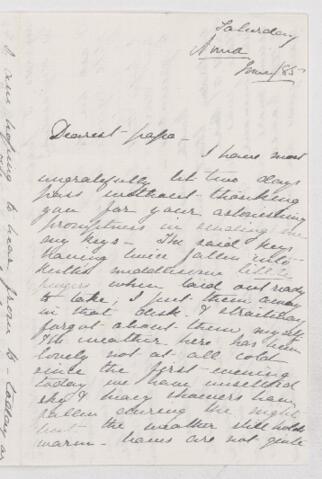 Saturday
Anna
Dearest papa -
I have most
ungratefully let two days
pass without thanking
you for your astonishing
promptness in sending me
my keys - The said keys
having twice fallen into
meddlesome little
fingers when laid out ready
to take, I put them away
in that desk & straightway
forgot about them, myself
The weather here has been
lovely not at all cold
since the first evening
today we have unsettled
sky & many showers have
fallen during the night
but the weather still holds
warm - are not quite
I am hoping to hear from to-day